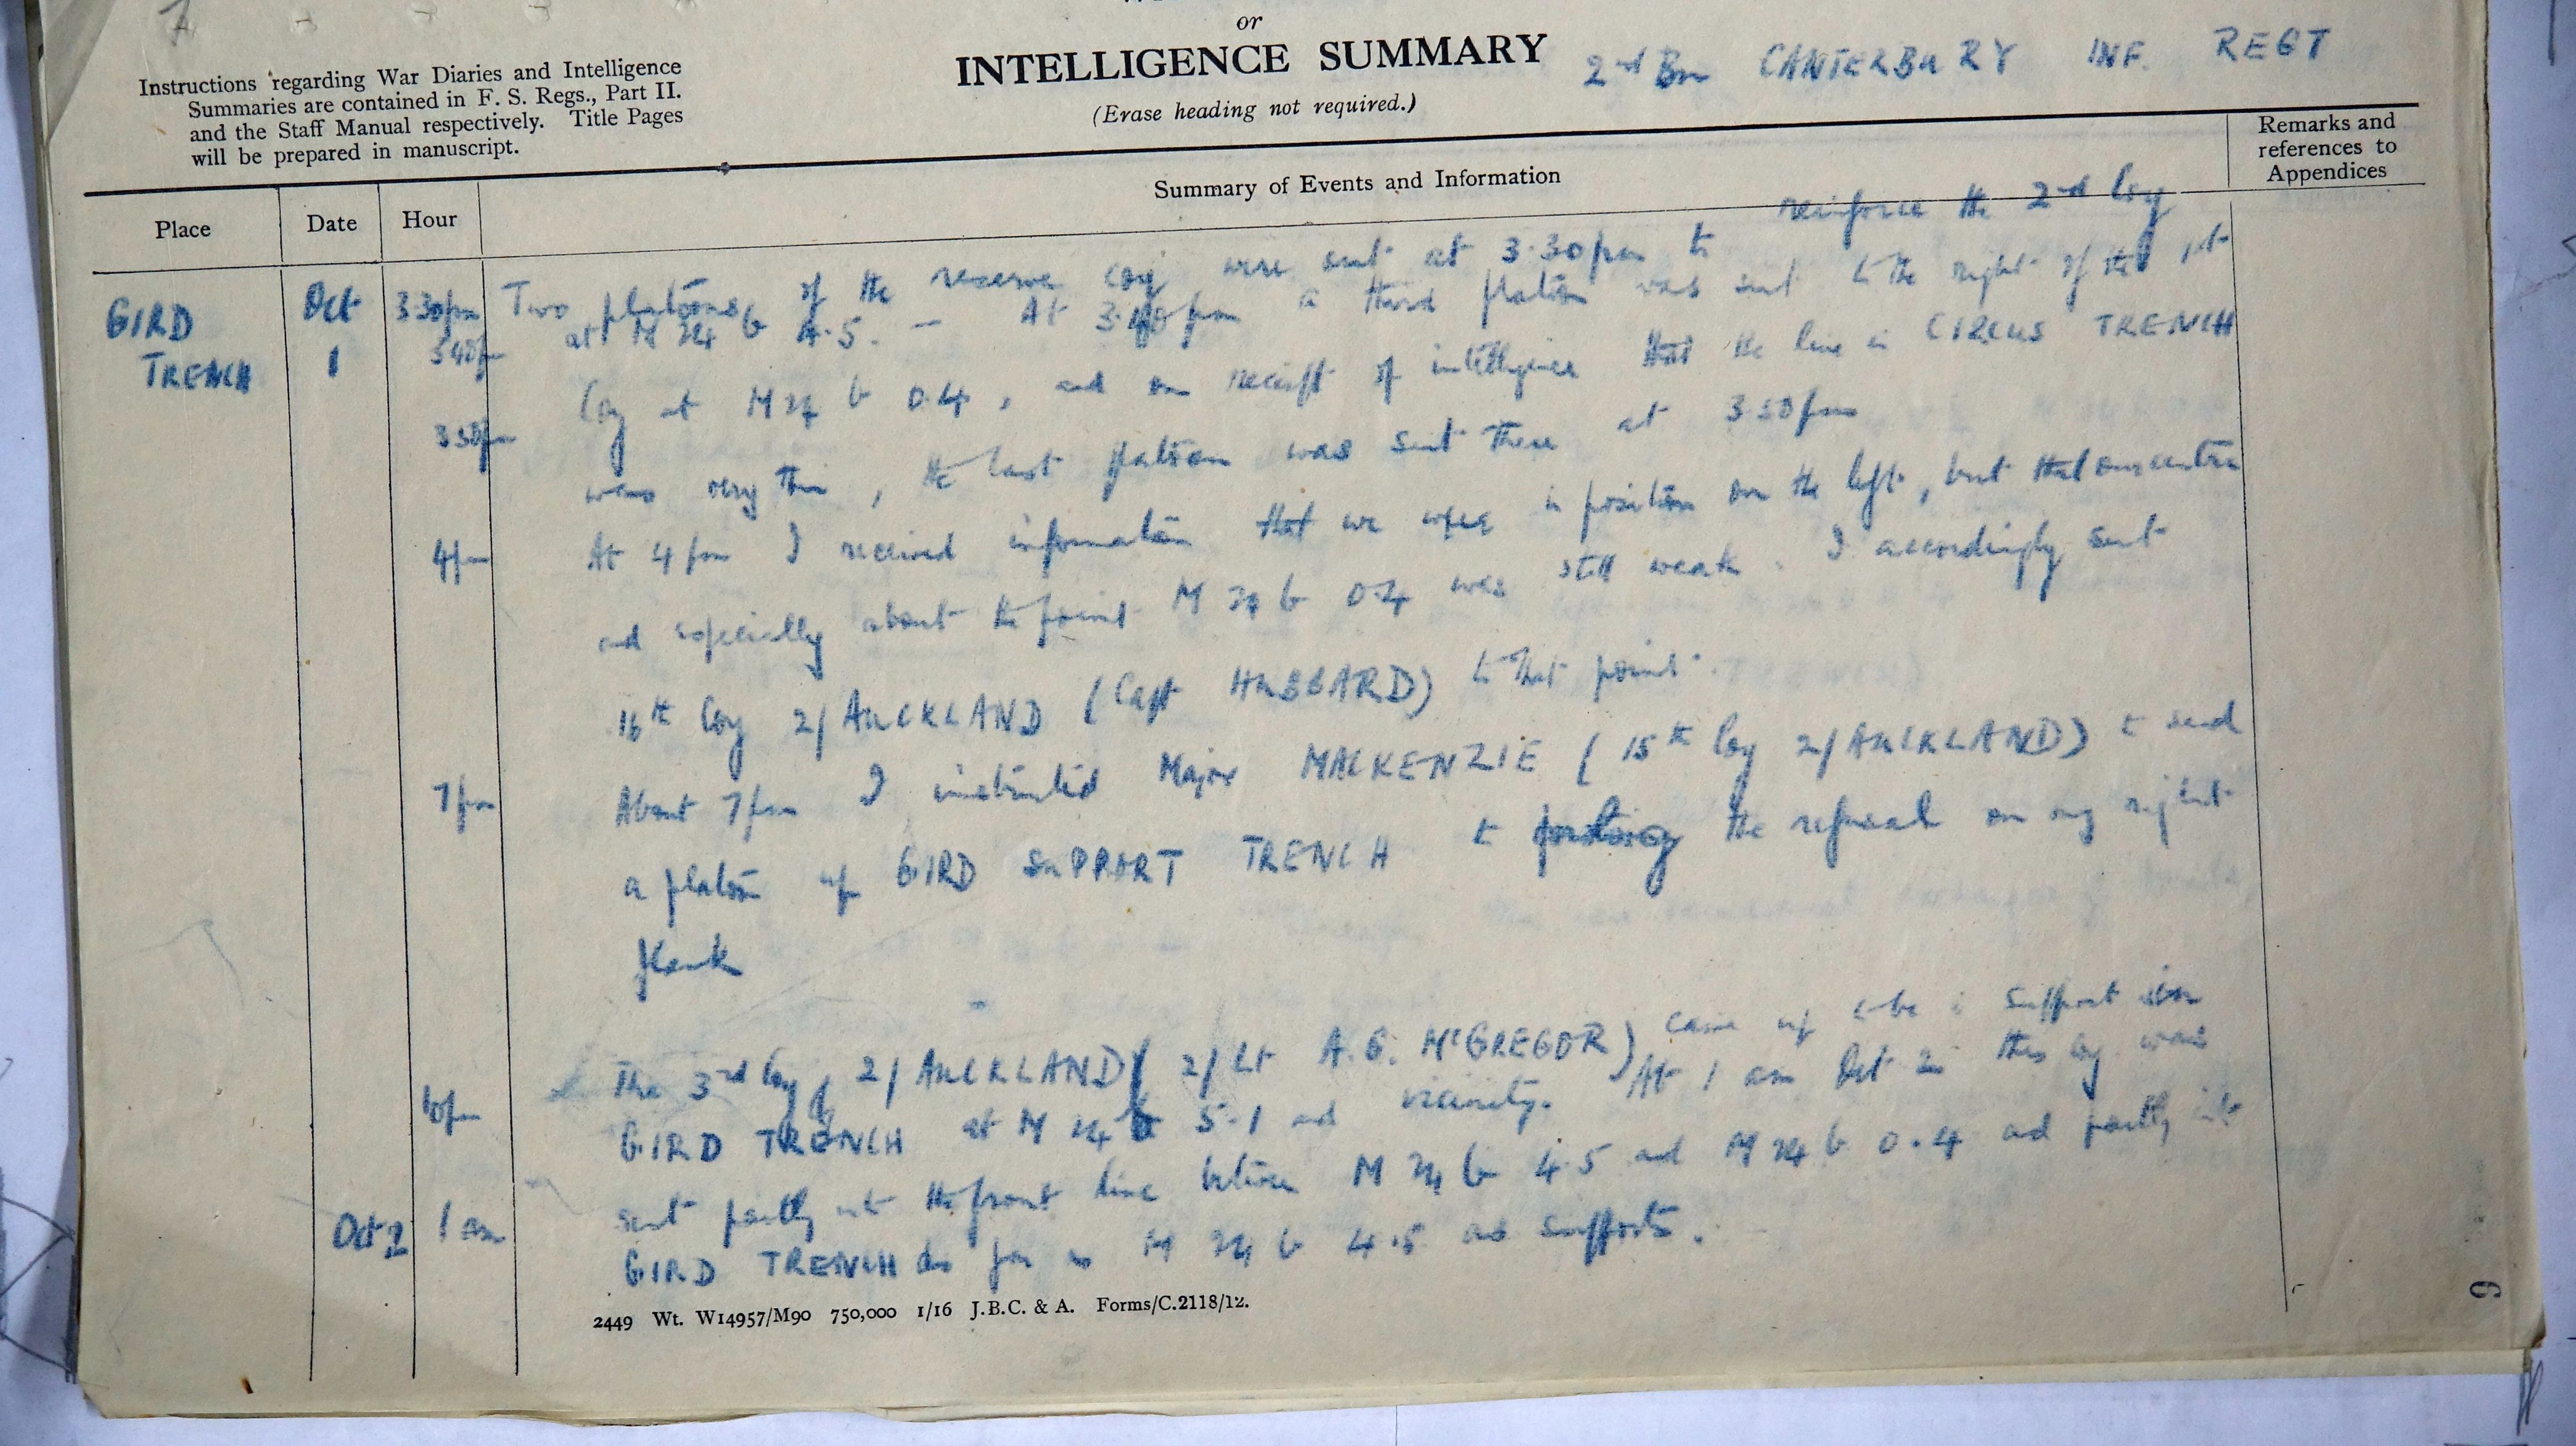 or
INTELLIGENCE SUMMARY
2nd Bn CANTERBURY INF. REGT
(Erase heading not required.)
Instructions regarding War Diaries and Intelligence
Summaries are contained in F. S. Regs., Part II.
and the Staff Manual respectively. Title Pages
will be prepared in manuscript.
Place
Date
Hour
Summary of Events and Information
Remarks and
references to
Appendices
GIRD
TRENCH
Oct
1
3.30pm Two platoons of the reserve coy were sent at 3.30pm to reinforce the 2nd Coy
3.40pm at M 24 b 4.5. — At 3.40pm a third platoon was sent to the right of the 1st
Coy at M 24 b 0.4, and on receipt of intelligence that the line in CIRCUS TRENCH
3.50pm was very thin, the last platoon was sent there at 3.50pm
4pm At 4pm I received information that we were in position on the left, but that our centre
and especially about the point M 24 b 0.4 was still weak. I accordingly sent
16th Coy 2/AUCKLAND (Capt HUBBARD) to that point.
7pm About 7pm I instructed Major MACKENZIE (15th Coy 2/AUCKLAND) to send
a platoon up GIRD SUPPORT TRENCH to prolong the refusal on my right
flank
The 3rd Coy, 2/AUCKLAND (2/Lt A.G. McGREGOR) came up to be in support in
10pm GIRD TRENCH at M 24 5.1 and vicinity. At 1 am Oct 2 this coy was
sent partly into the front line between M 24 b 4.5 and M 24 b 0.4 and partly into
Oct 2 1 am GIRD TRENCH as far as M 24 b 4.5 as supports.
2449 Wt. W14957/M90 750,000 1/16 J.B.C. & A. Forms/C.2118/12.
9